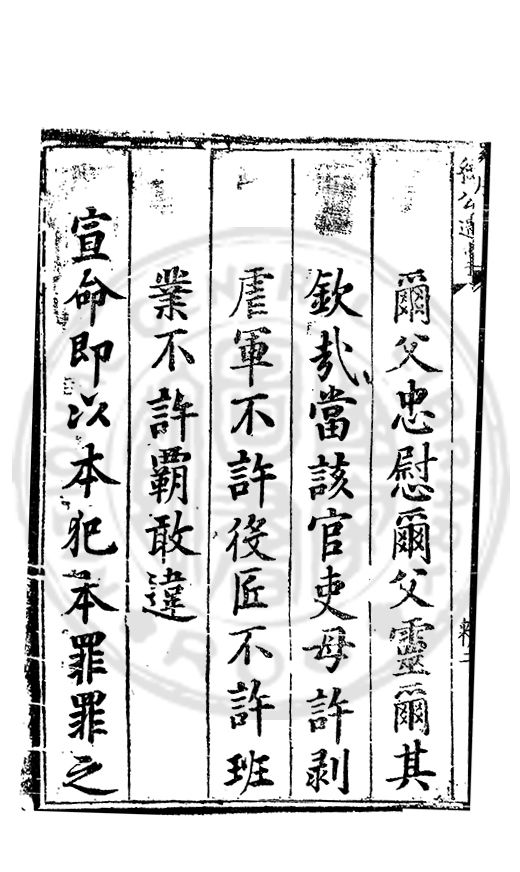 爾父忠慰爾父靈爾其
欽㢤當該官吏毋許剥
虐軍不許役匠不許班
業不許霸敢違
宣命即以本犯本罪罪之